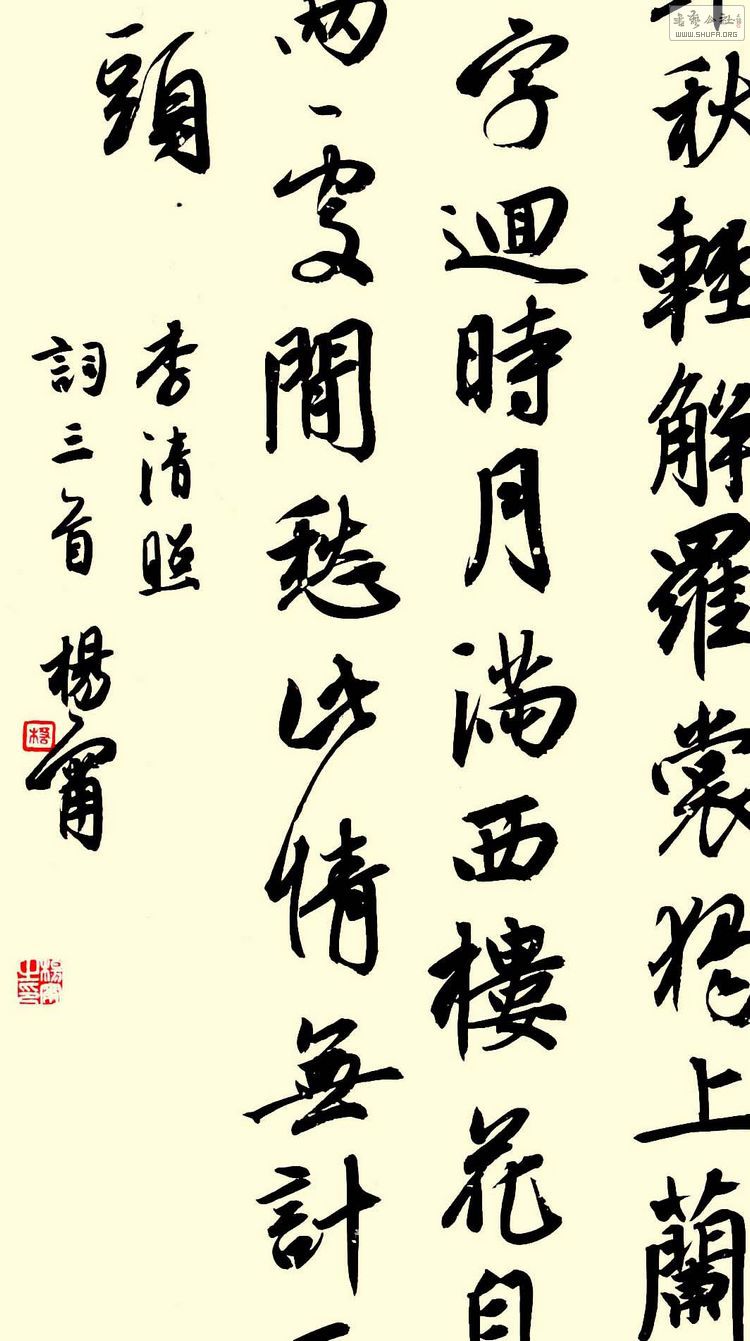 秋輕解羅裳獨上蘭
字迴時月滿西樓花自
兩處閒愁此情無計
頭
李清照
詞三首 楊甯
WWW.SHUFA.ORG